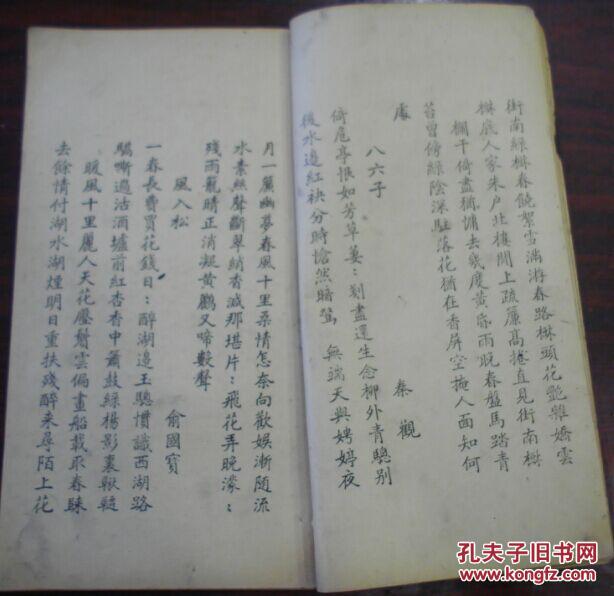 街南綠樹春饒絮雪滿游春路樹頭花艷雜嬌雲
樹底人家朱户北樓閒上疏簾高捲直見街南樹
欄干倚盡猶慵去幾度黄昏雨晚春盤馬踏青
苔曾傍綠陰深駐落花猶在香屏空掩人面知何
處
八六子
秦觀
倚危亭恨如芳草萋:剗盡還生念柳外青驄别
後水邊紅袂分時愴然暗驚 無端天與娉婷夜
月一簾幽夢春風十里柔情怎奈向歡娱漸随流
水素絃聲斷翠綃香減那堪片:飛花弄晚濛:
殘雨籠晴正消凝黄鸝又啼數聲
風入松
俞國寳
一春長費買花錢日:醉湖邊玉驄慣識西湖路
驕嘶過沽酒壚前紅杏香中簫鼓綠楊影裏鞦韆
暖風十里麗人天花壓鬢雲偏畫船載取春歸
去餘情付湖水湖煙明日重扶殘醉来尋陌上花
孔夫子旧书网
kongfz.com